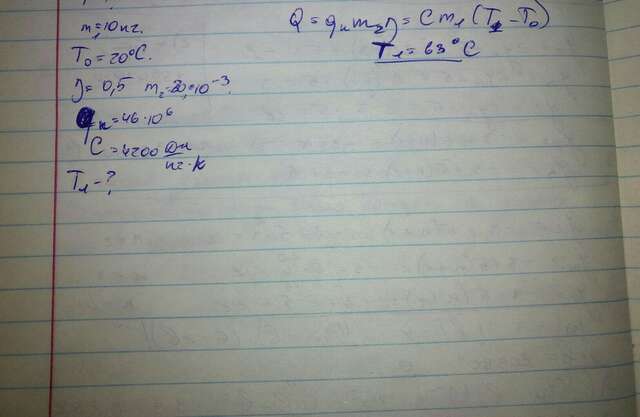 m₁=10 кг.
T₀=20°C.
η=0,5 m₂=80·10⁻³.
qк=46·10⁶
C=4200 Дж/кг·К
T₁-?
Q=qкm₂η=Cm₁(T₁-T₀)
T₁=63°C